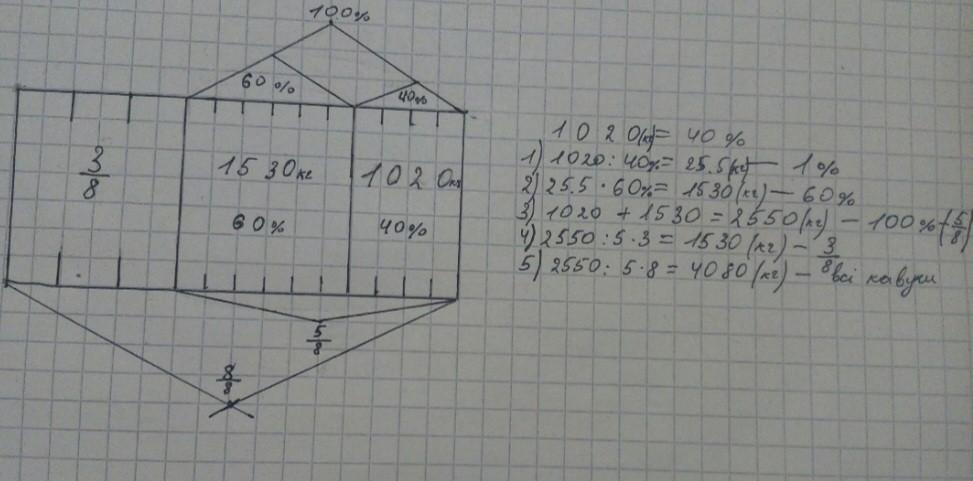 100%
60%
40%
3/8
1530кг
60%
1020кг
40%
5/8
8/8
1020(кг)= 40%
1) 1020:40%= 25.5(кг)— 1%
2) 25.5·60%= 1530(кг)— 60%
3) 1020 + 1530 = 2550(кг) - 100% (5/8)
4) 2550:5·3 = 1530(кг) - 3/8
5) 2550:5·8 = 4080(кг) — всі кавуни